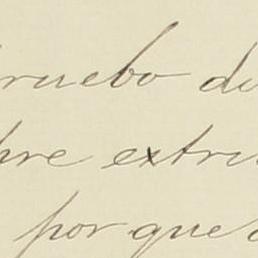 ruebo de
bre extri
por que